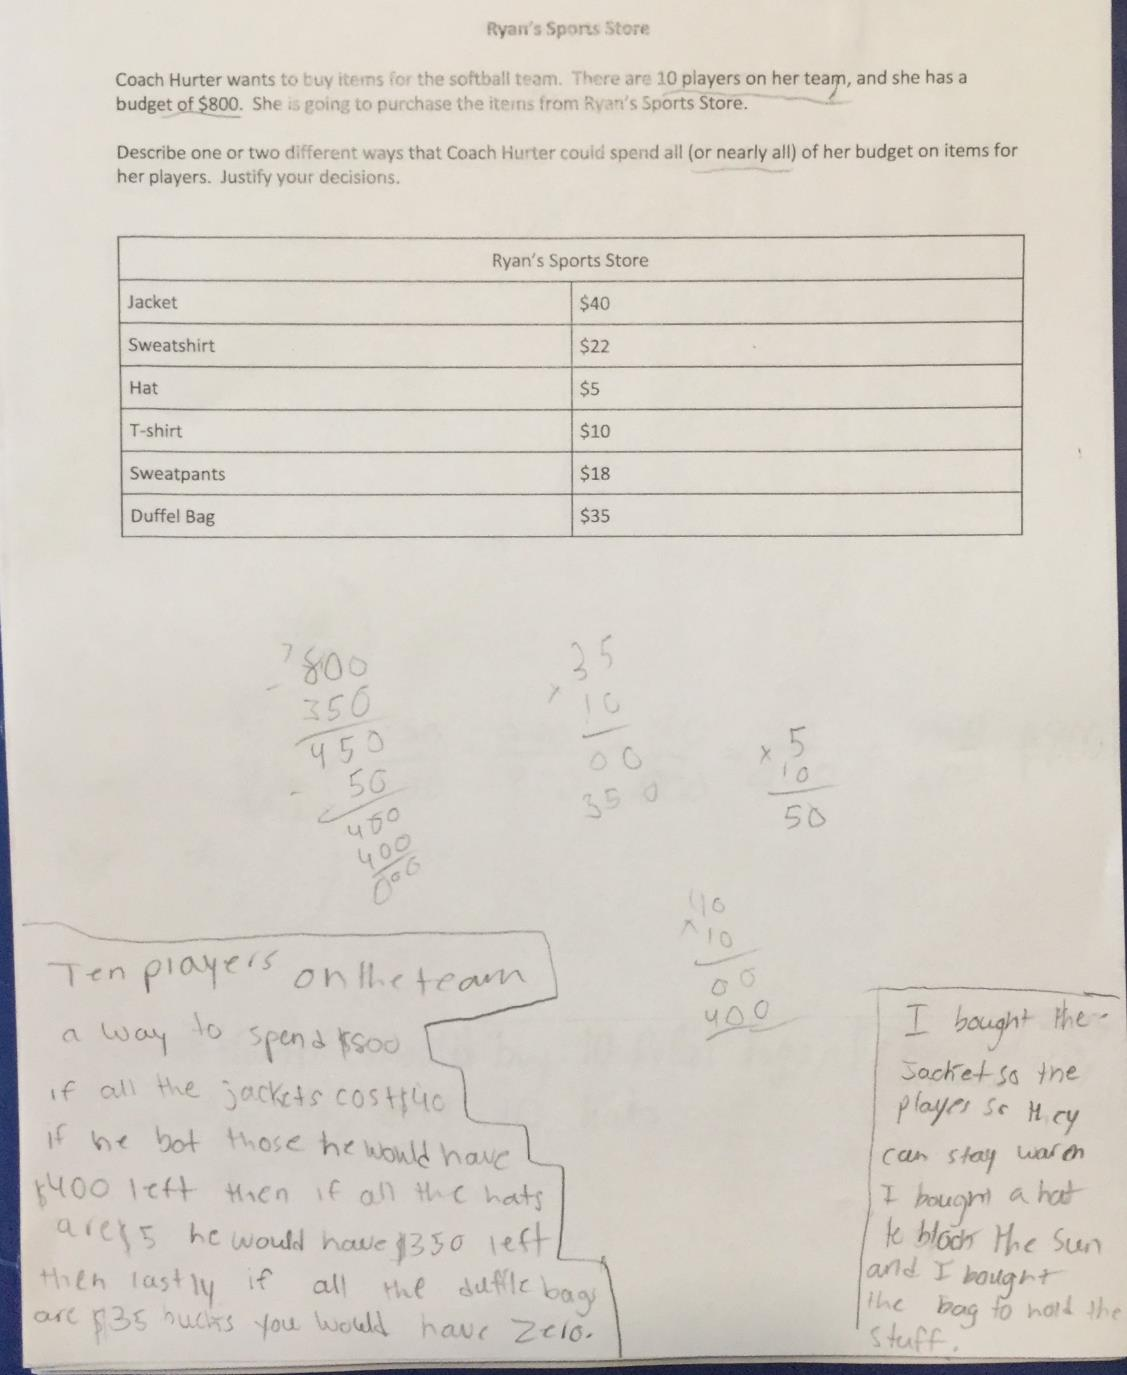 Ryan's Sports Store
Coach Hurter wants to buy items for the softball team. There are 10 players on her team, and she has a
budget of $800. She is going to purchase the items from Ryan's Sports Store.
Describe one or two different ways that Coach Hurter could spend all (or nearly all) of her budget on items for
her players. Justify your decisions.
Ryan's Sports Store
Jacket $40
Sweatshirt $22
Hat $5
T-shirt $10
Sweatpants $18
Duffel Bag $35
7
800
- 350
450
- 50
400
400
000
35
x 10
00
350
x 5
10
50
40
x 10
00
400
Ten players on the team
a way to spend $800
if all the jackets cost $40
if he bot those he would have
$400 left then if all the hats
are $5 he would have $350 left
then lastly if all the duffle bags
are $35 bucks you would have zero.
I bought the
Jacket so the
player so they
can stay warm
I bought a hat
to block the sun
and I bought
the bag to hold the
stuff.